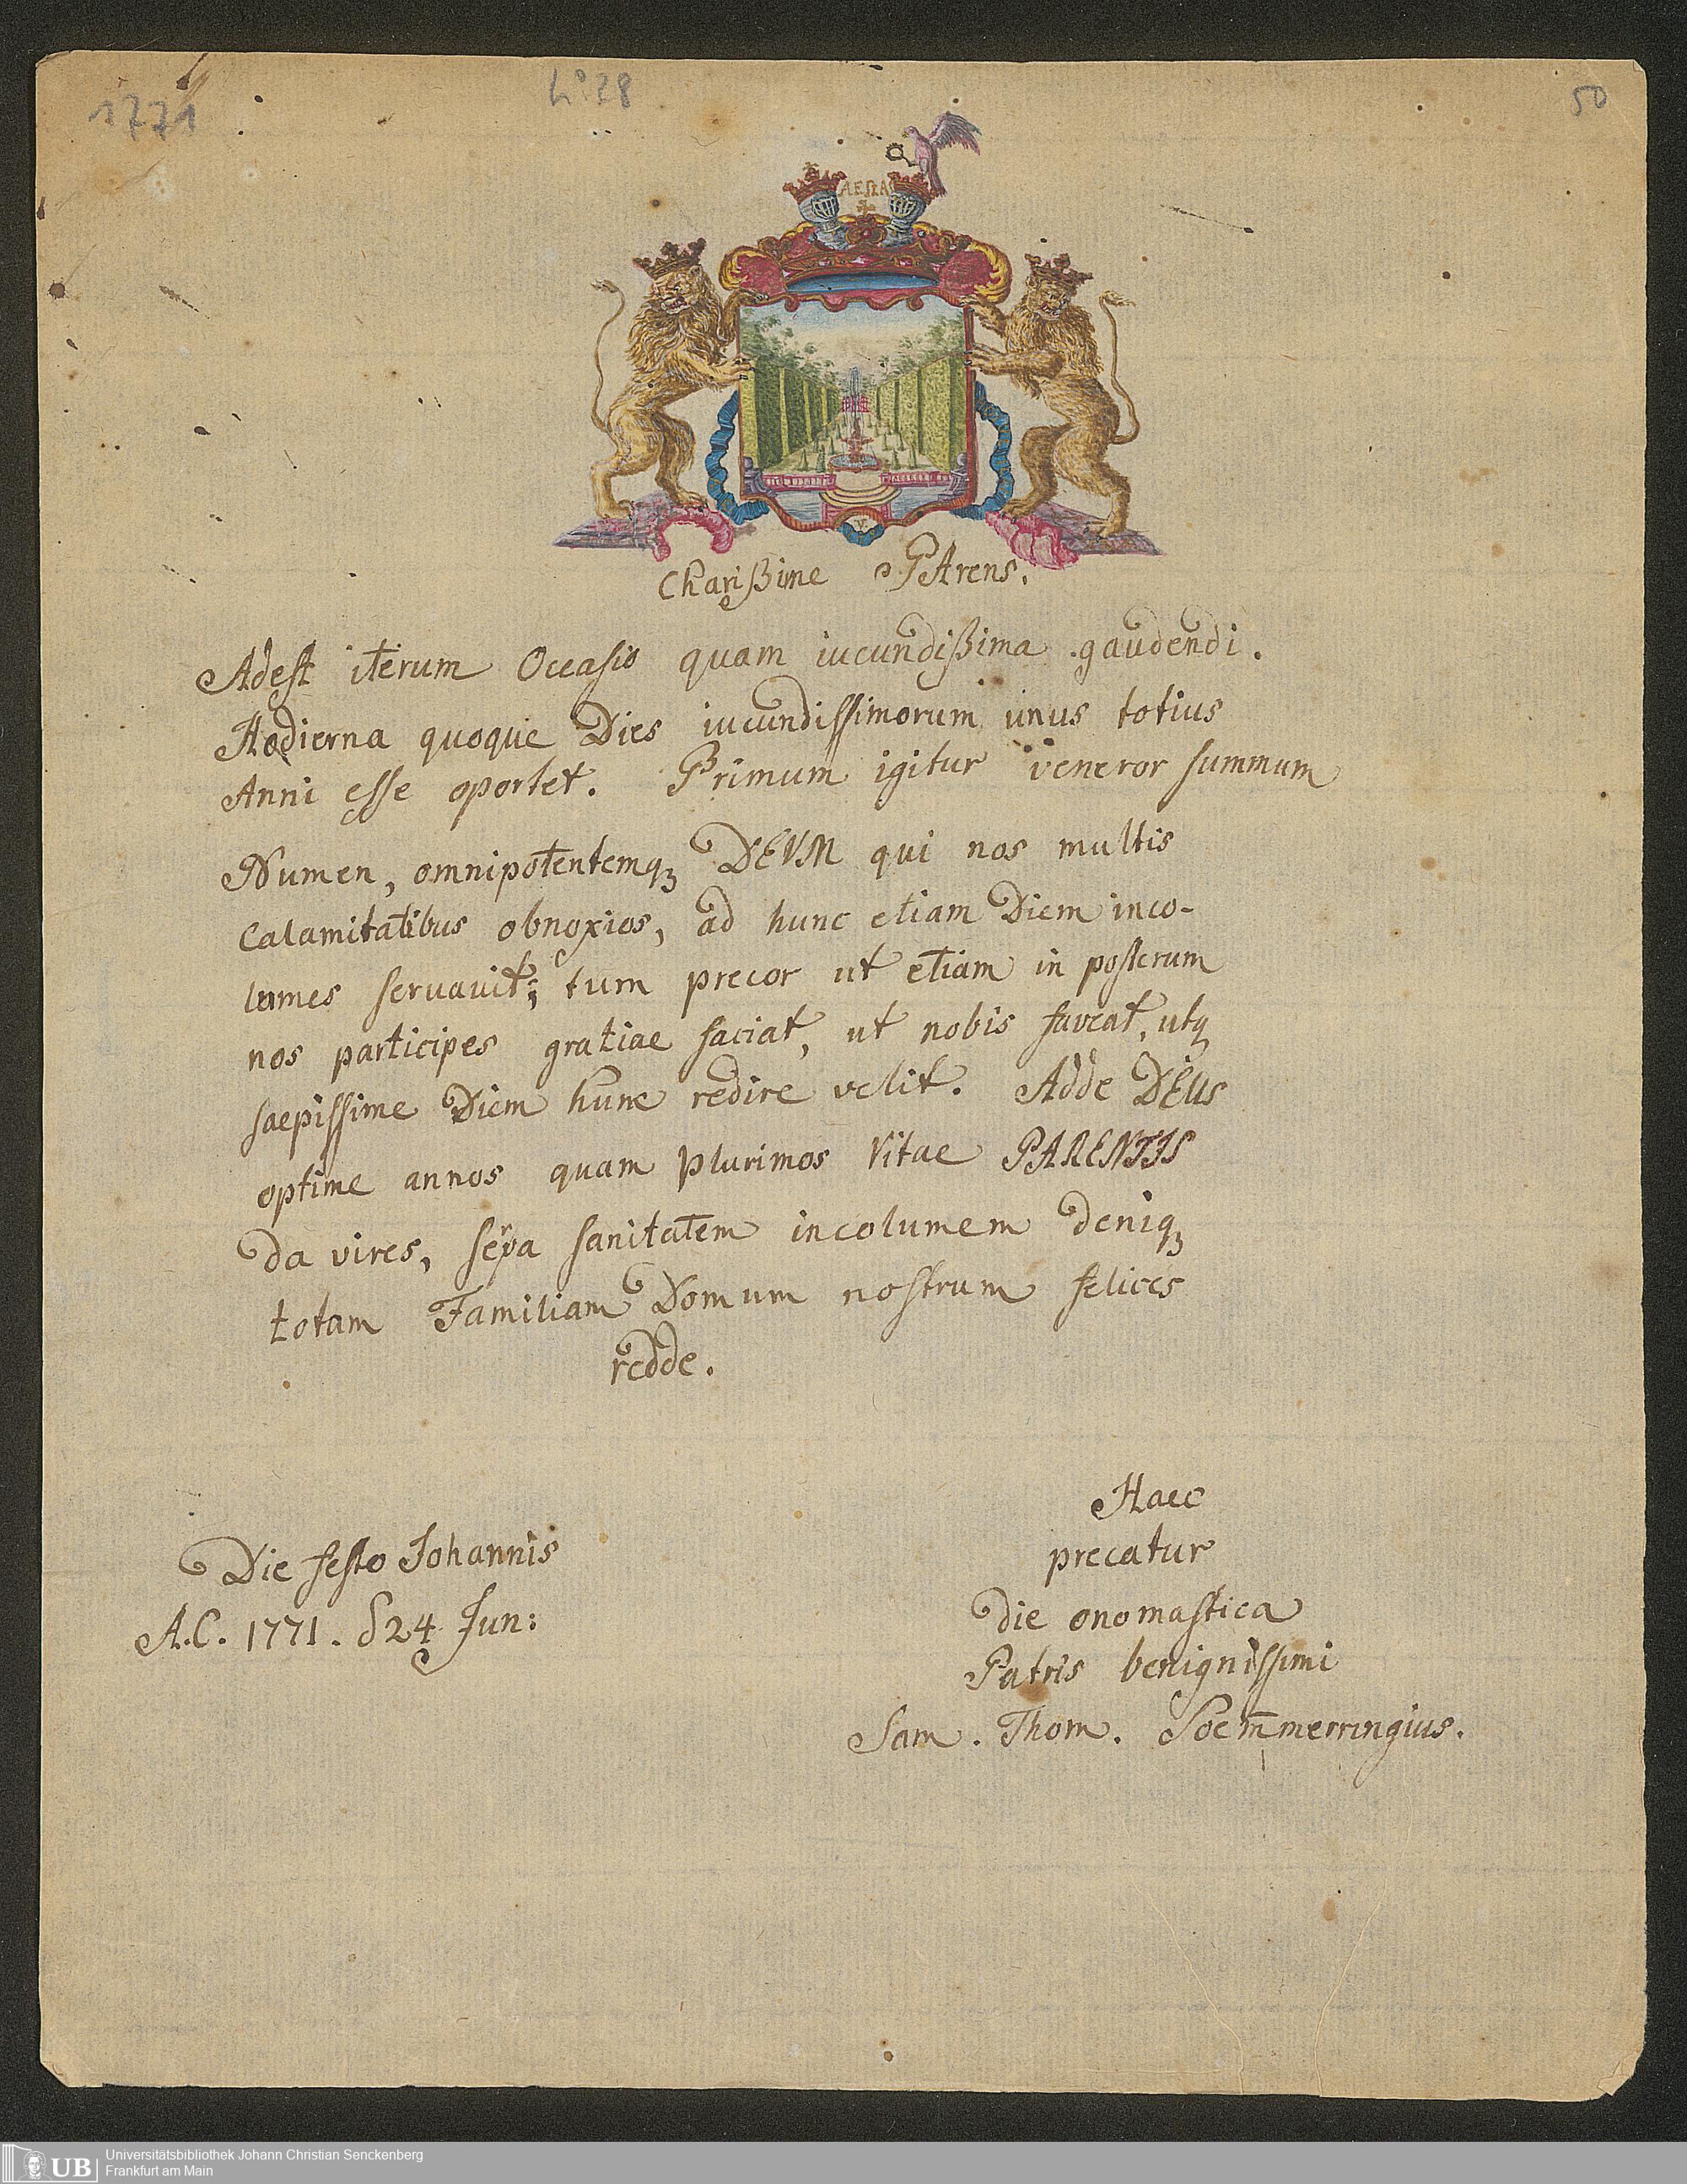 1771
50
Charißime PArens.
Adest iterum Occasio quam iucundißima gaudendi.
Hodierna quoque Dies iucundissimorum unus totius
Anni esse oportet. Primum igitur veneror summum
Numen, omnipotentemq₃ DEVM qui nos multis
Calamitatibus obnoxios, ad hunc etiam Diem inco-
lumes servavit; tum precor ut etiam in posterum
nos participes gratiae faciat, ut nobis faveat, utq₃
saepissime Diem hunc redire velit. Adde DEUS
optime annos quam plurimos Vitae PARENTIS
Da vires, sanitatem incolumem Deniq₃
totam Familiam Domum nostrum felices
redde.
Haec
precatur
Die onomastica
Patris benignissimi
Sam. Thom. Soem̄merringius.
Die festo Johannis
A.C. 1771. d 24 Jun:
UB
Universitätsbibliothek Johann Christian Senckenberg
Frankfurt am Main